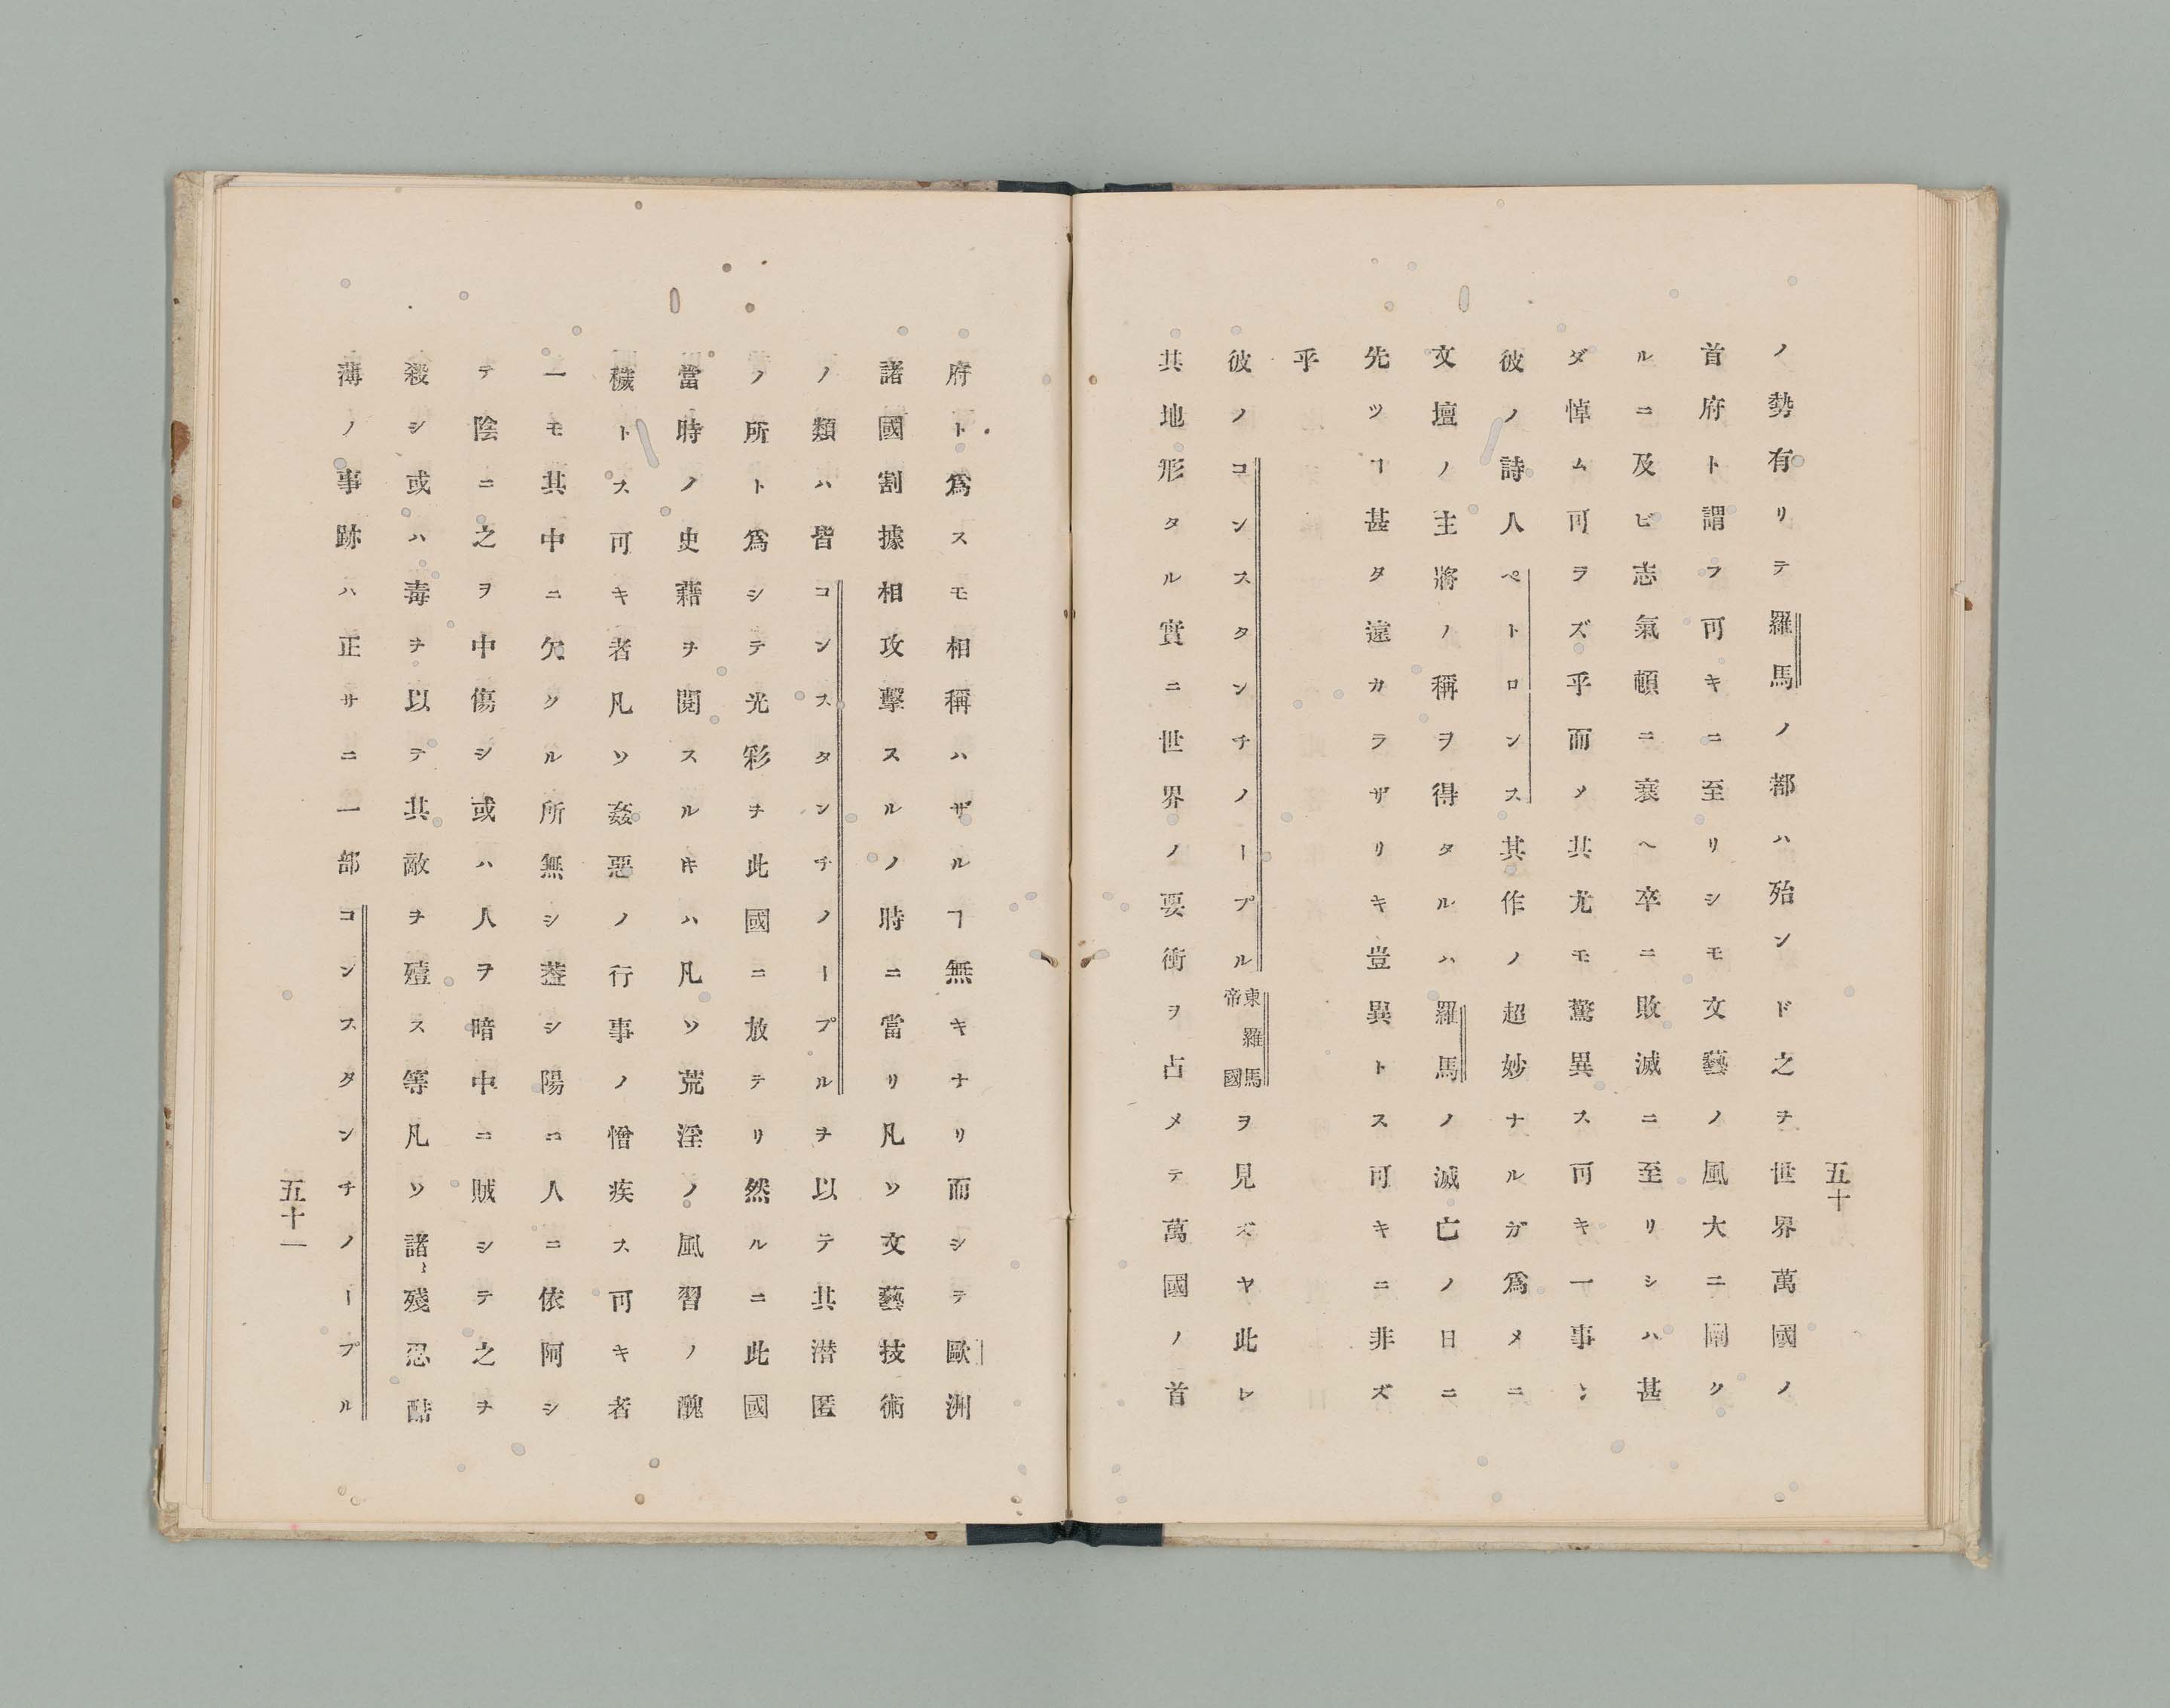 五十
ノ勢有リテ羅馬ノ都ハ殆ンド之ヲ世界萬國ノ
首府ト謂フ可キニ至リシモ文藝ノ風大ニ開ク
ルニ及ビ志氣頓ニ衰ヘ卒ニ敗滅ニ至リシハ甚
ダ悼ム可ラズ乎而メ其尤モ驚異ス可キ一事ハ
彼ノ詩人ペトロンス其作ノ超妙ナルガ爲メニ
文壇ノ主將ノ稱ヲ得タルハ羅馬ノ滅亡ノ日ニ
先ツヿ甚タ遠カラザリキ豈異トス可キニ非ズ
乎
彼ノコンスタンチノープル東羅馬帝國ヲ見ズヤ此レ
其地形タル實ニ世界ノ要衝ヲ占メテ萬國ノ首
府ト爲スモ相稱ハザルヿ無キナリ而シテ歐洲
諸國割據相攻擊スルノ時ニ當リ凡ソ文藝技術
ノ類ハ皆コンスタンチノープルヲ以テ其潜匿
ノ所ト爲シテ光彩ヲ此國ニ放テリ然ルニ此國
當時ノ史藉ヲ閱スルキハ凡ソ荒淫ノ風習ノ醜
穢トス可キ者凡ソ姦惡ノ行事ノ憎疾ス可キ者
一モ其中ニ欠クル所無シ葢シ陽ニ人ニ依阿シ
テ陰ニ之ヲ中傷シ或ハ人ヲ暗中ニ賊シテ之ヲ
殺シ或ハ毒ヲ以テ其敵ヲ殪ス等凡ソ諸〻殘忍酷
薄ノ事跡ハ正サニ一部コンスタンチノープル
五十一